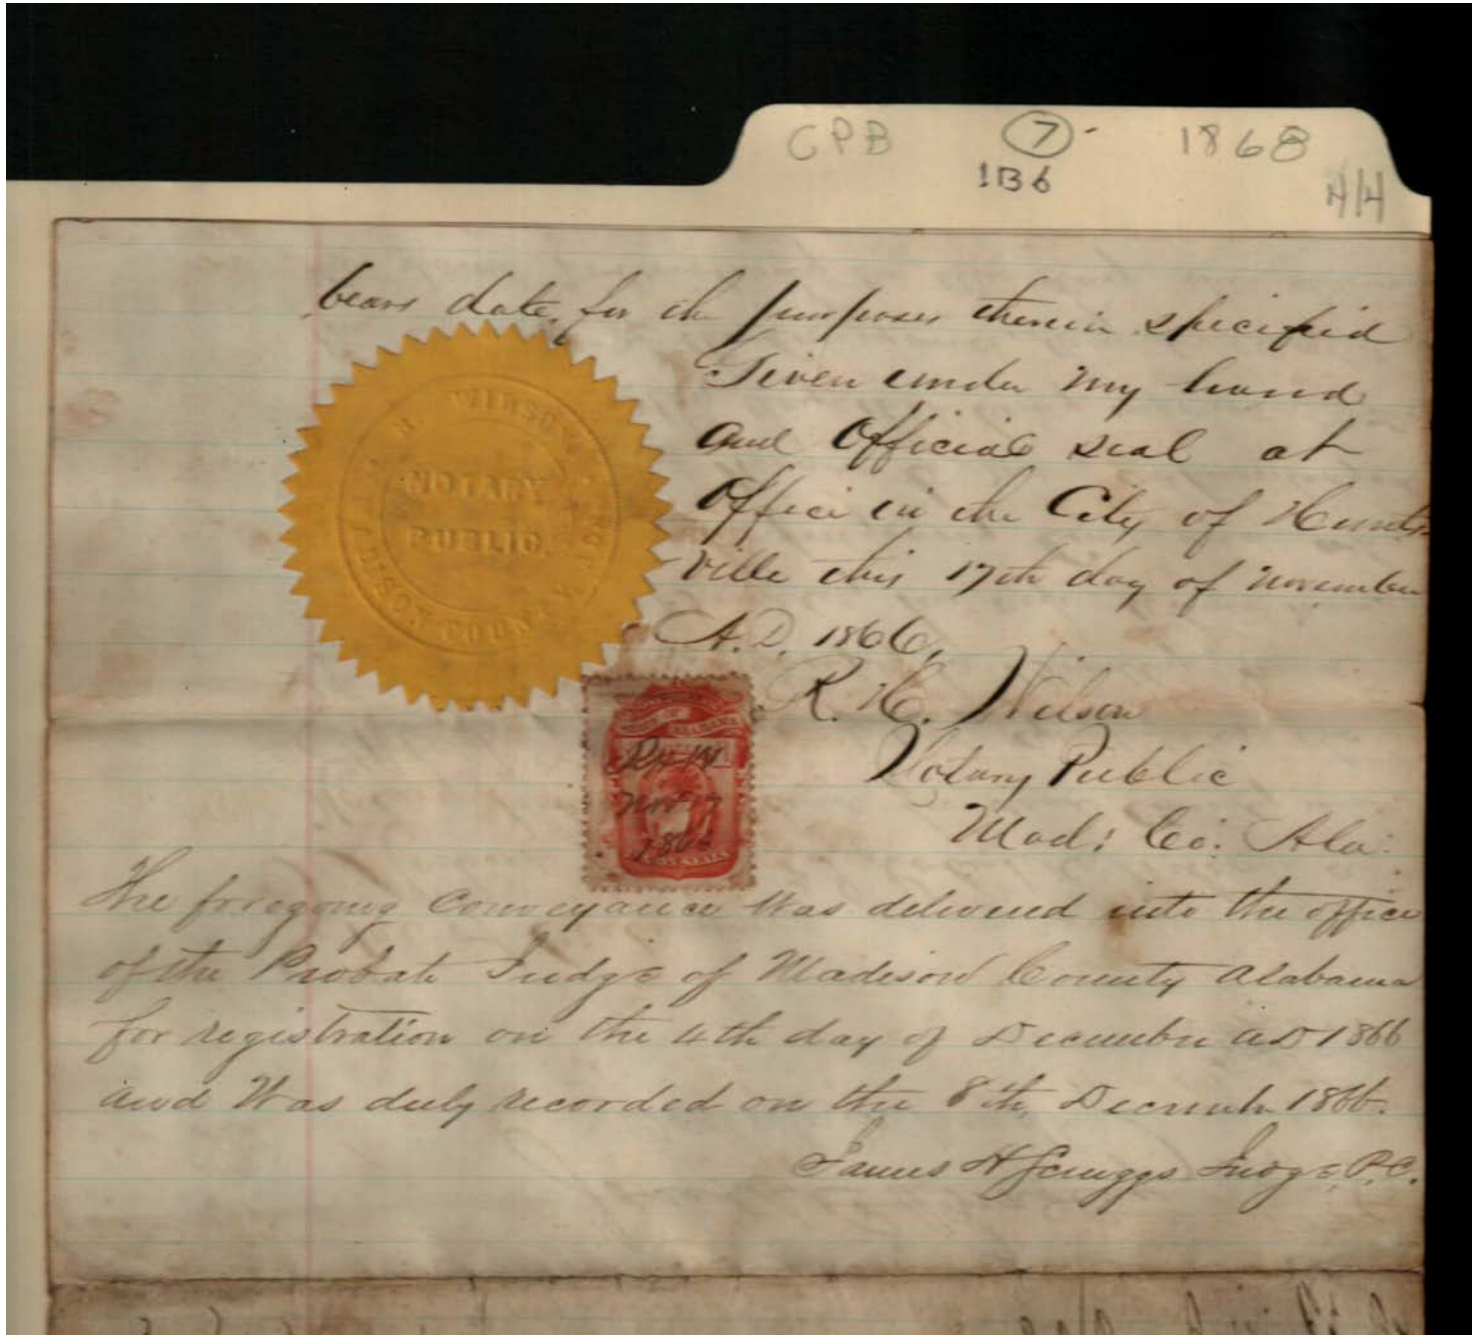 CPB 7 1868
1B6
H/H
bears date, for the purposes therein specified
Given under my hand
and Official seal at
Office in the City of Hunts-
ville this 17th day of November
A.D. 1866,
R. H. Wilson
Notary Public
Mad: Co: Ala:
WILSON
NOTARY
PUBLIC
MADISON COUNTY
ALABAMA
Nov 17
1866
The foregoing Conveyance was delivered into the office
of the Probate Judge of Madison County Alabama
for registration on the 4th day of December AD 1866
and was duly recorded on the 8th, December 1866.
James H Scruggs Judge P.C.